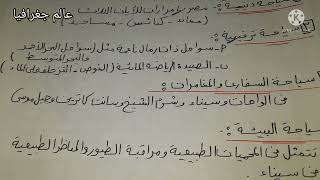 عالم جغرافيا
سياحة دينية :- مصر بها مزارات للأديان الثلاث
(معابد - كنائس - مساجد)
سياحة ترفيهية :-
سواحل ذات رمال ناعمة مثل (سواحل البحر الأحمر
والبحر المتوسط)
ب- الصيد والرياضة المائية (الغوص - التزحلق على الماء)
سياحة السفاري والمغامرات :-
في الواحات وسيناء وشرم الشيخ وسانت كاترين وجبل موسى
سياحة البيئة :-
تتمثل في المحميات الطبيعية ومراقبة الطيور والمناظر الطبيعية
في سيناء.